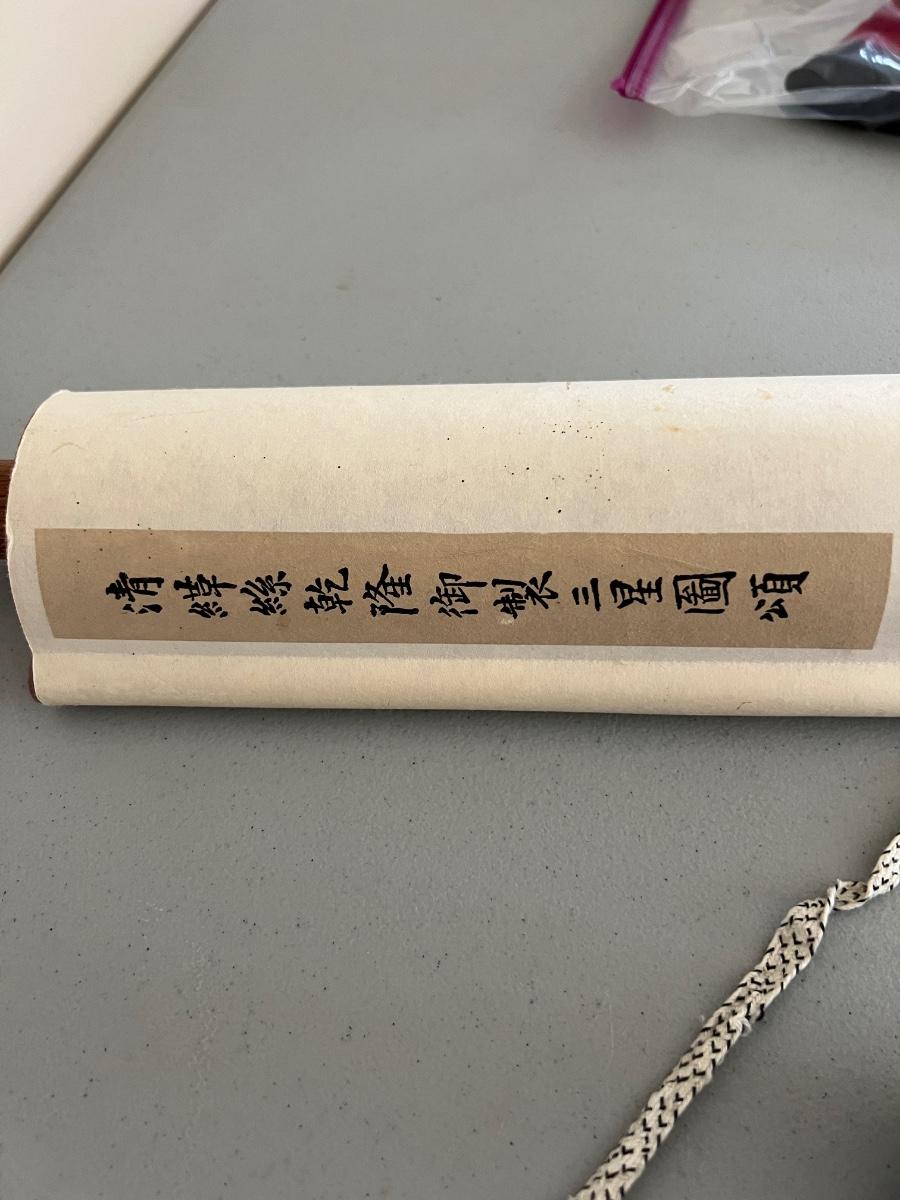 清緙絲乾隆御製三星圖頌